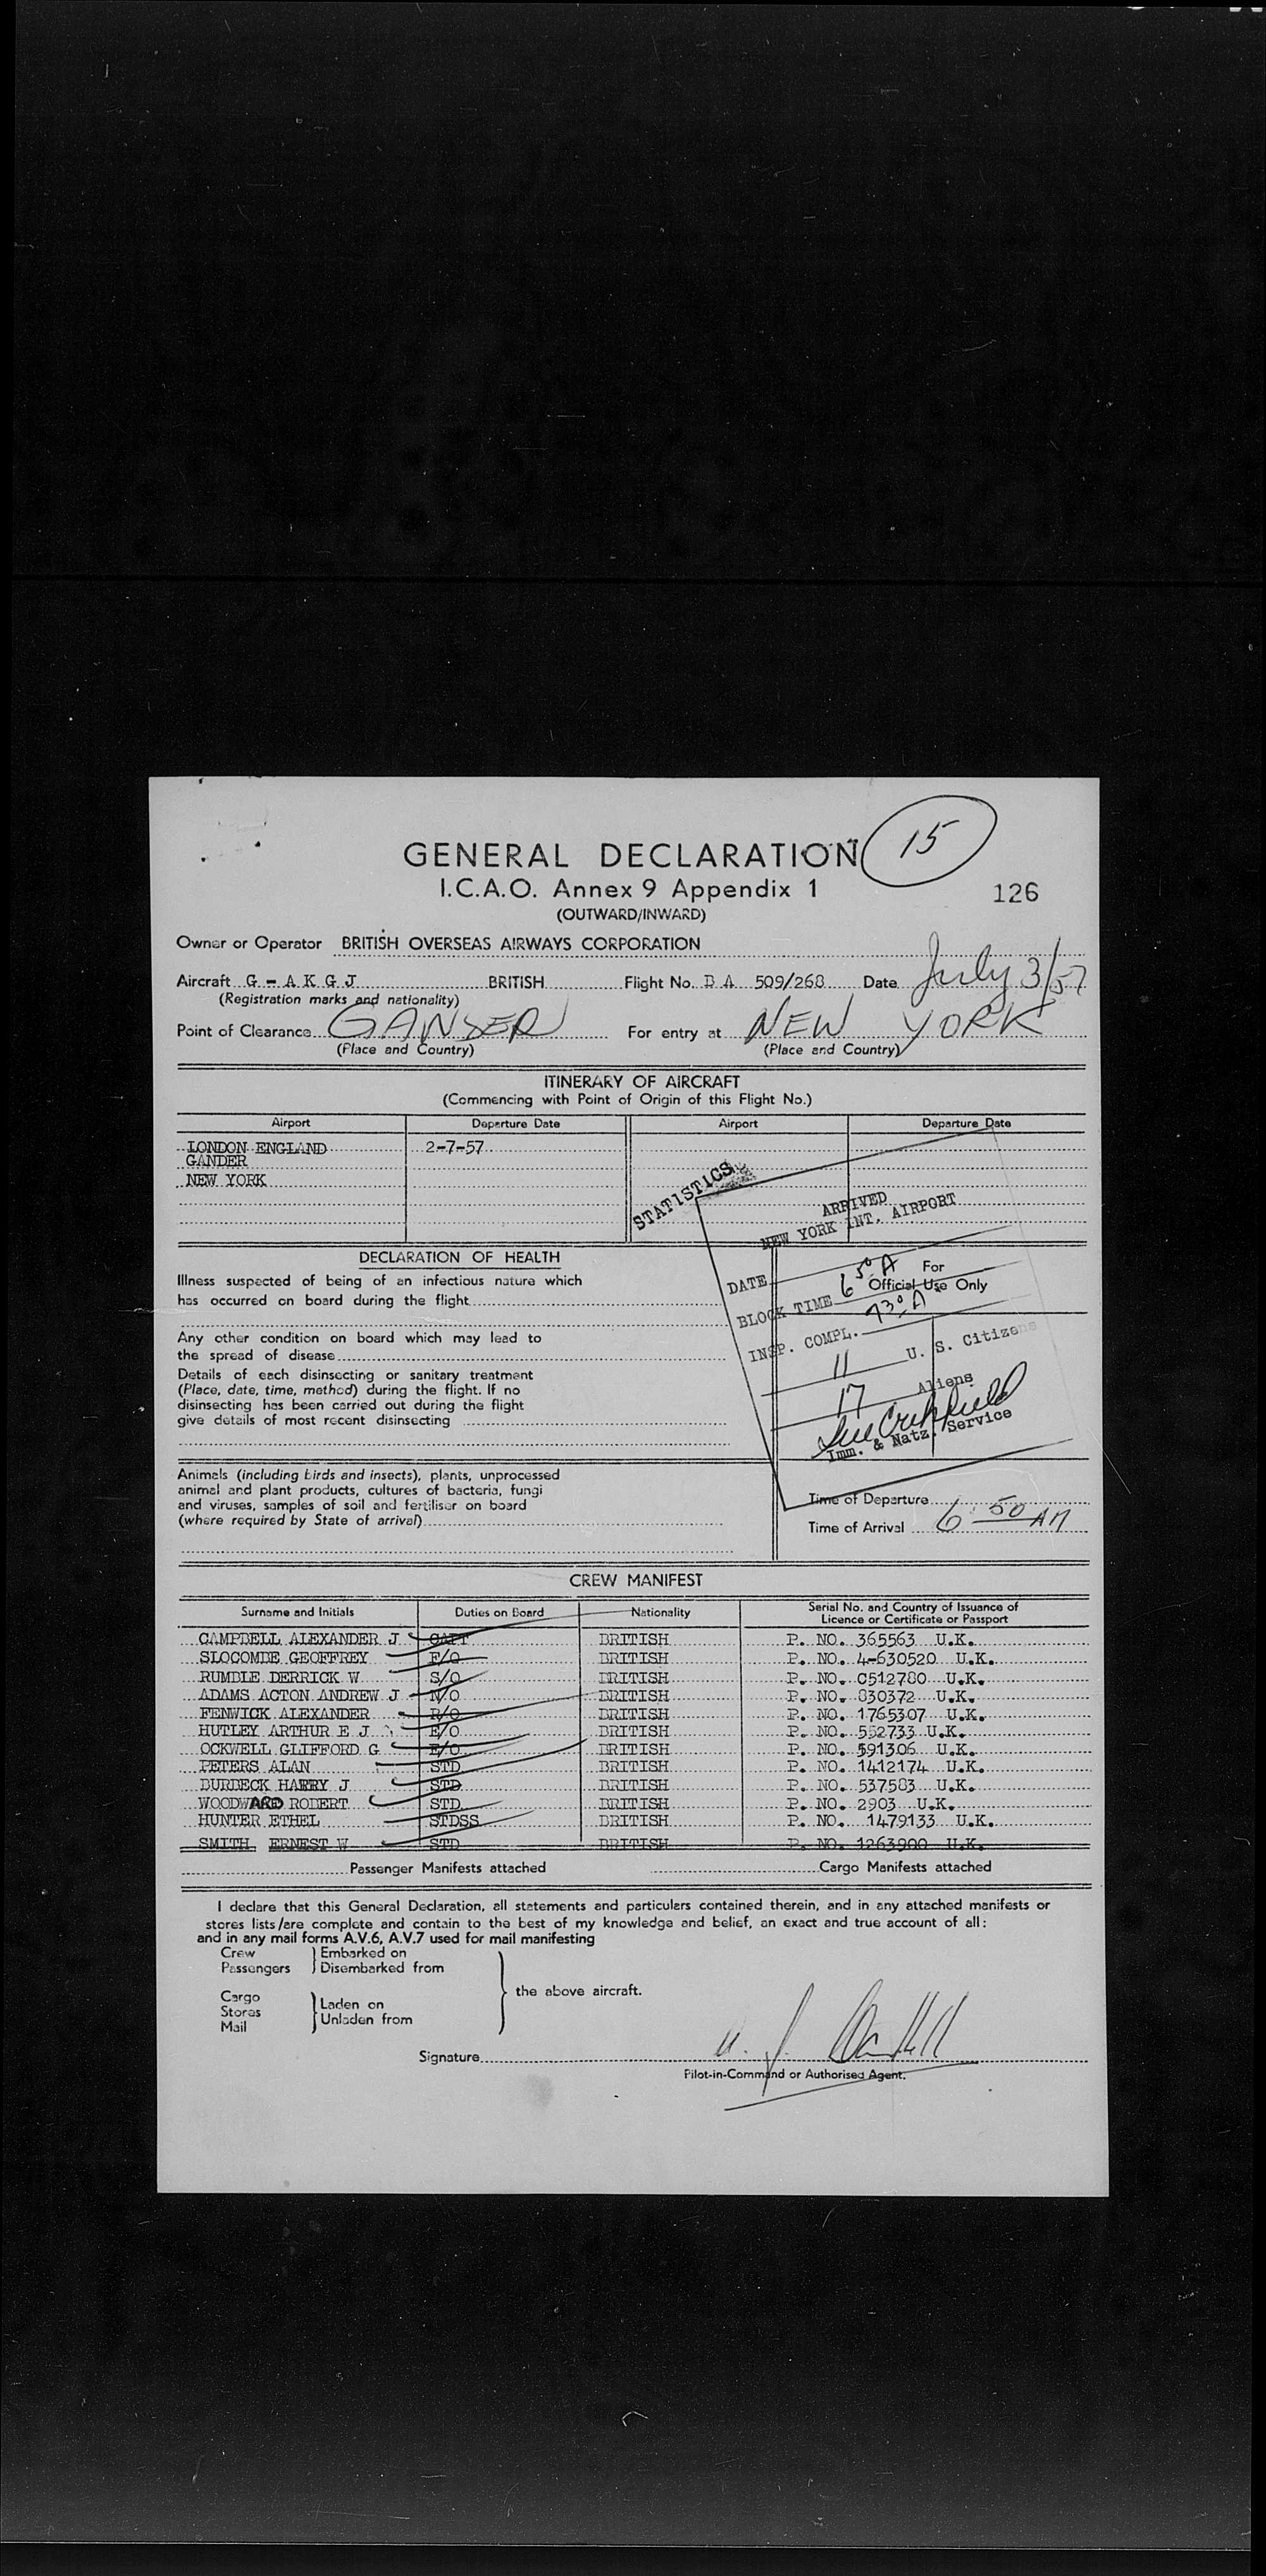 15
GENERAL DECLARATION
I.C.A.O. Annex 9 Appendix 1
126
(OUTWARD/INWARD)
Owner or Operator BRITISH OVERSEAS AIRWAYS CORPORATION
Aircraft G - A K G J BRITISH Flight No. B A 509/268 Date July 3/57
(Registration marks and nationality)
Point of Clearance GANDER For entry at NEW YORK
(Place and Country) (Place and Country)
ITINERARY OF AIRCRAFT
(Commencing with Point of Origin of this Flight No.)
Airport Departure Date Airport Departure Date
LONDON ENGLAND 2-7-57
GANDER
NEW YORK
STATISTICS
ARRIVED
NEW YORK INT. AIRPORT
DATE
BLOCK TIME 6 50 A
INSP. COMPL. 7 30 A
11 U. S. Citizens
17 Aliens
Imm. & Natz. Service
DECLARATION OF HEALTH
Illness suspected of being of an infectious nature which
has occurred on board during the flight
Any other condition on board which may lead to
the spread of disease
Details of each disinsecting or sanitary treatment
(Place, date, time, method) during the flight. If no
disinsecting has been carried out during the flight
give details of most recent disinsecting
For
Official Use Only
Animals (including birds and insects), plants, unprocessed
animal and plant products, cultures of bacteria, fungi
and viruses, samples of soil and fertiliser on board
(where required by State of arrival)
Time of Departure
Time of Arrival 6 50 AM
CREW MANIFEST
Surname and Initials Duties on Board Nationality Serial No. and Country of Issuance of
Licence or Certificate or Passport
CAMPBELL ALEXANDER J CAPT BRITISH P. NO. 365563 U.K.
SLOCOMBE GEOFFREY F/O BRITISH P. NO. 4-630520 U.K.
RUMBLE DERRICK W S/O BRITISH P. NO. C512780 U.K.
ADAMS ACTON ANDREW J N/O BRITISH P. NO. 830372 U.K.
FENWICK ALEXANDER R/O BRITISH P. NO. 1765307 U.K.
HUTLEY ARTHUR E J E/O BRITISH P. NO. 552733 U.K.
OCKWELL GLIFFORD G E/O BRITISH P. NO. 591306 U.K.
PETERS ALAN STD BRITISH P. NO. 1412174 U.K.
BURBECK HARRY J STD BRITISH P. NO. 537583 U.K.
WOODWARD ROBERT STD BRITISH P. NO. 2903 U.K.
HUNTER ETHEL STDSS BRITISH P. NO. 1479133 U.K.
SMITH ERNEST W STD BRITISH P. NO. 1263900 U.K.
Passenger Manifests attached Cargo Manifests attached
I declare that this General Declaration, all statements and particulars contained therein, and in any attached manifests or
stores lists/are complete and contain to the best of my knowledge and belief, an exact and true account of all:
and in any mail forms A.V.6, A.V.7 used for mail manifesting
Crew Embarked on
Passengers Disembarked from
the above aircraft.
Cargo
Stores Laden on
Mail Unladen from
Signature
Pilot-in-Command or Authorised Agent.